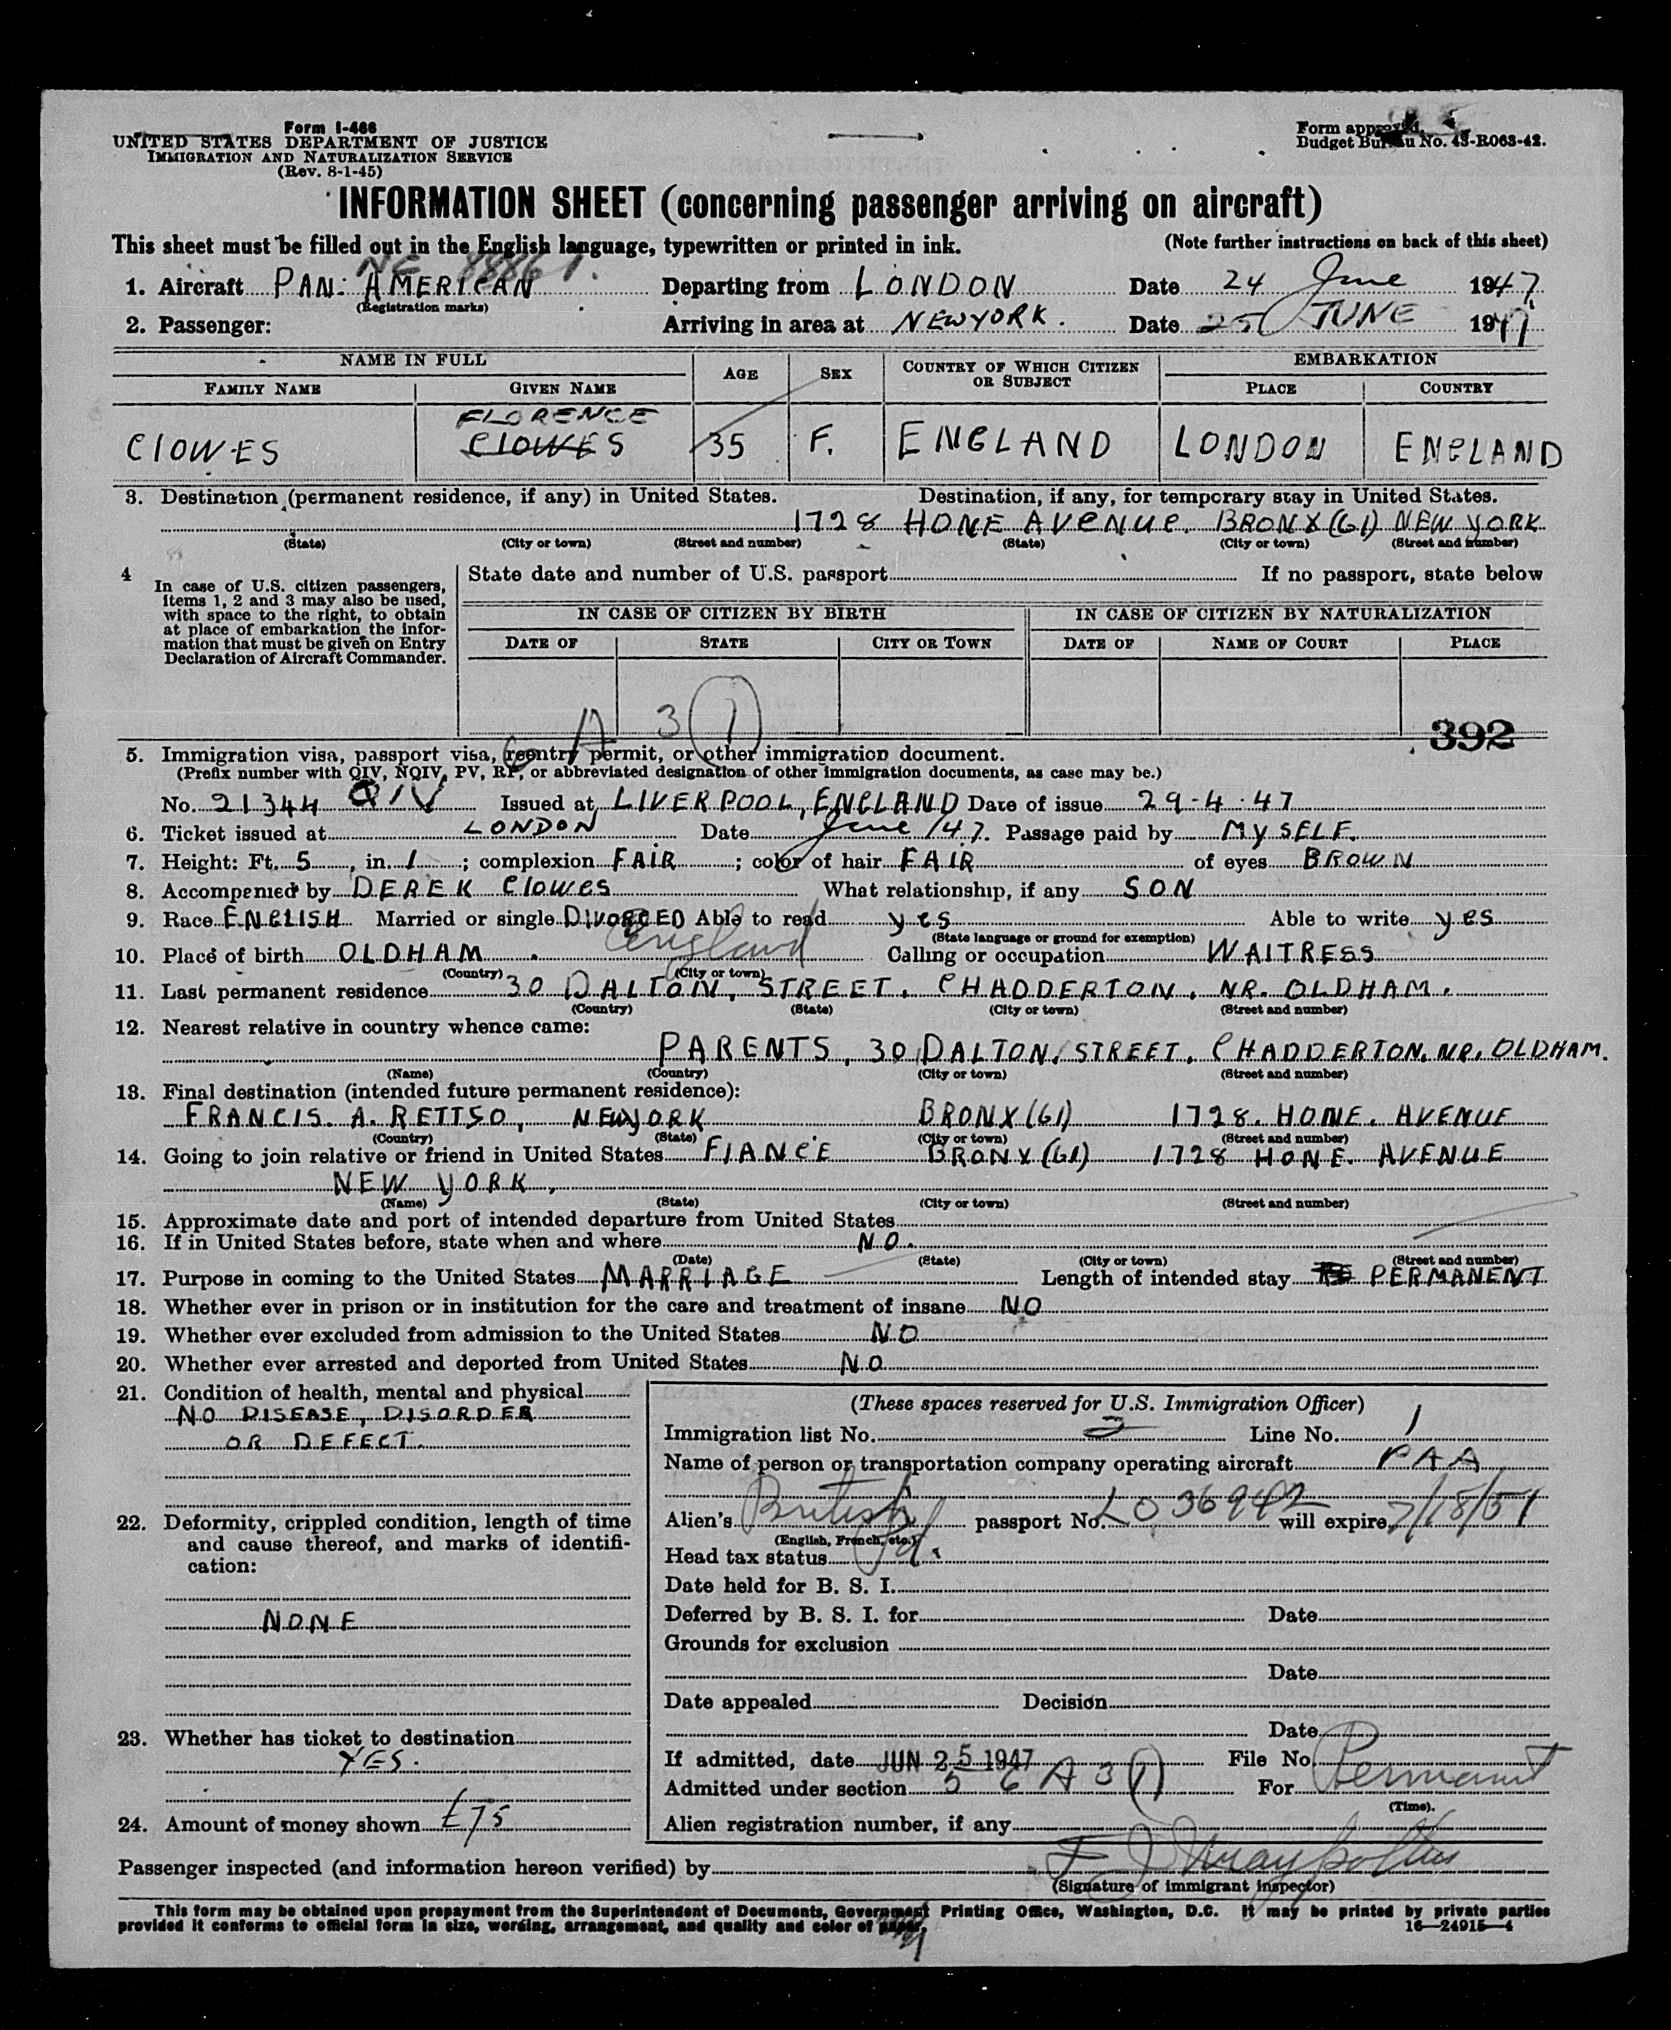 Form I-466
UNITED STATES DEPARTMENT OF JUSTICE
IMMIGRATION AND NATURALIZATION SERVICE
(Rev. 8-1-45)
Form approved.
Budget Bureau No. 43-R063-42.
INFORMATION SHEET (concerning passenger arriving on aircraft)
This sheet must be filled out in the English language, typewritten or printed in ink. (Note further instructions on back of this sheet)
NC 88861.
1. Aircraft PAN. AMERICAN Departing from LONDON Date 24 June 1947
(Registration marks)
2. Passenger: Arriving in area at NEWYORK. Date 25 JUNE 1947
NAME IN FULL AGE SEX COUNTRY OF WHICH CITIZEN OR SUBJECT EMBARKATION
FAMILY NAME GIVEN NAME PLACE COUNTRY
FLORENCE
ClOWES ClOWES 35 F. ENGLAND LONDON ENGLAND
3. Destination (permanent residence, if any) in United States. Destination, if any, for temporary stay in United States.
1728 HONE AVeNUe. BRONX (61) NEW YORK
(State) (City or town) (Street and number) (State) (City or town) (Street and number)
4 In case of U.S. citizen passengers, items 1, 2 and 3 may also be used, with space to the right, to obtain at place of embarkation the information that must be given on Entry Declaration of Aircraft Commander.
State date and number of U.S. passport If no passport, state below
IN CASE OF CITIZEN BY BIRTH IN CASE OF CITIZEN BY NATURALIZATION
DATE OF STATE CITY OR TOWN DATE OF NAME OF COURT PLACE
6 A 3 (1)
392
5. Immigration visa, passport visa, reentry permit, or other immigration document.
(Prefix number with QIV, NQIV, PV, RP, or abbreviated designation of other immigration documents, as case may be.)
No. 21344 QIV Issued at LIVERPOOL, ENGLAND Date of issue 29-4-47
6. Ticket issued at LONDON Date June /47. Passage paid by MySELF.
7. Height: Ft. 5, in. 1; complexion FAIR; color of hair FAIR of eyes BROWN
8. Accompanied by DEREK Clowes What relationship, if any SON
9. Race ENGLISH Married or single DIVORCED Able to read yes Able to write yes
(State language or ground for exemption)
10. Place of birth OLDHAM. England Calling or occupation WAITRESS
(Country) (City or town)
11. Last permanent residence 30 DALTON, STREET. CHADDERTON. NR. OLDHAM.
(Country) (State) (City or town) (Street and number)
12. Nearest relative in country whence came:
PARENTS, 30 DALTON. STREET. CHADDERTON. NR. OLDHAM.
(Name) (Country) (City or town) (Street and number)
13. Final destination (intended future permanent residence):
FRANCIS. A. RETTSO, NEWYORK BRONX (61) 1728. HONE. AVENUE
(Country) (State) (City or town) (Street and number)
14. Going to join relative or friend in United States FIANCE BRONX (61) 1728 HONE. AVENUE
NEW YORK,
(Name) (State) (City or town) (Street and number)
15. Approximate date and port of intended departure from United States
16. If in United States before, state when and where NO.
(Date) (State) (City or town) (Street and number)
17. Purpose in coming to the United States MARRIAGE Length of intended stay PERMANENT
18. Whether ever in prison or in institution for the care and treatment of insane NO
19. Whether ever excluded from admission to the United States NO
20. Whether ever arrested and deported from United States NO
21. Condition of health, mental and physical
NO DISEASE, DISORDER
OR DEFECT.
22. Deformity, crippled condition, length of time
and cause thereof, and marks of identifi-
cation:
NONE
23. Whether has ticket to destination
YES.
24. Amount of money shown £75
(These spaces reserved for U.S. Immigration Officer)
Immigration list No. 2 Line No. 1
Name of person or transportation company operating aircraft PAA
Alien's British passport No. LO 36942 will expire 7/18/51
(English, French, etc.)
Head tax status Pd.
Date held for B. S. I.
Deferred by B. S. I. for Date
Grounds for exclusion
Date
Date appealed Decision
Date
If admitted, date JUN 25 1947 File No.
Admitted under section 5 6 A 3 (1) For Permanent
(Time).
Alien registration number, if any
Passenger inspected (and information hereon verified) by
(Signature of immigrant inspector)
This form may be obtained upon prepayment from the Superintendent of Documents, Government Printing Office, Washington, D.C. It may be printed by private parties
provided it conforms to official form in size, wording, arrangement, and quality and color of paper.
16—24915-4